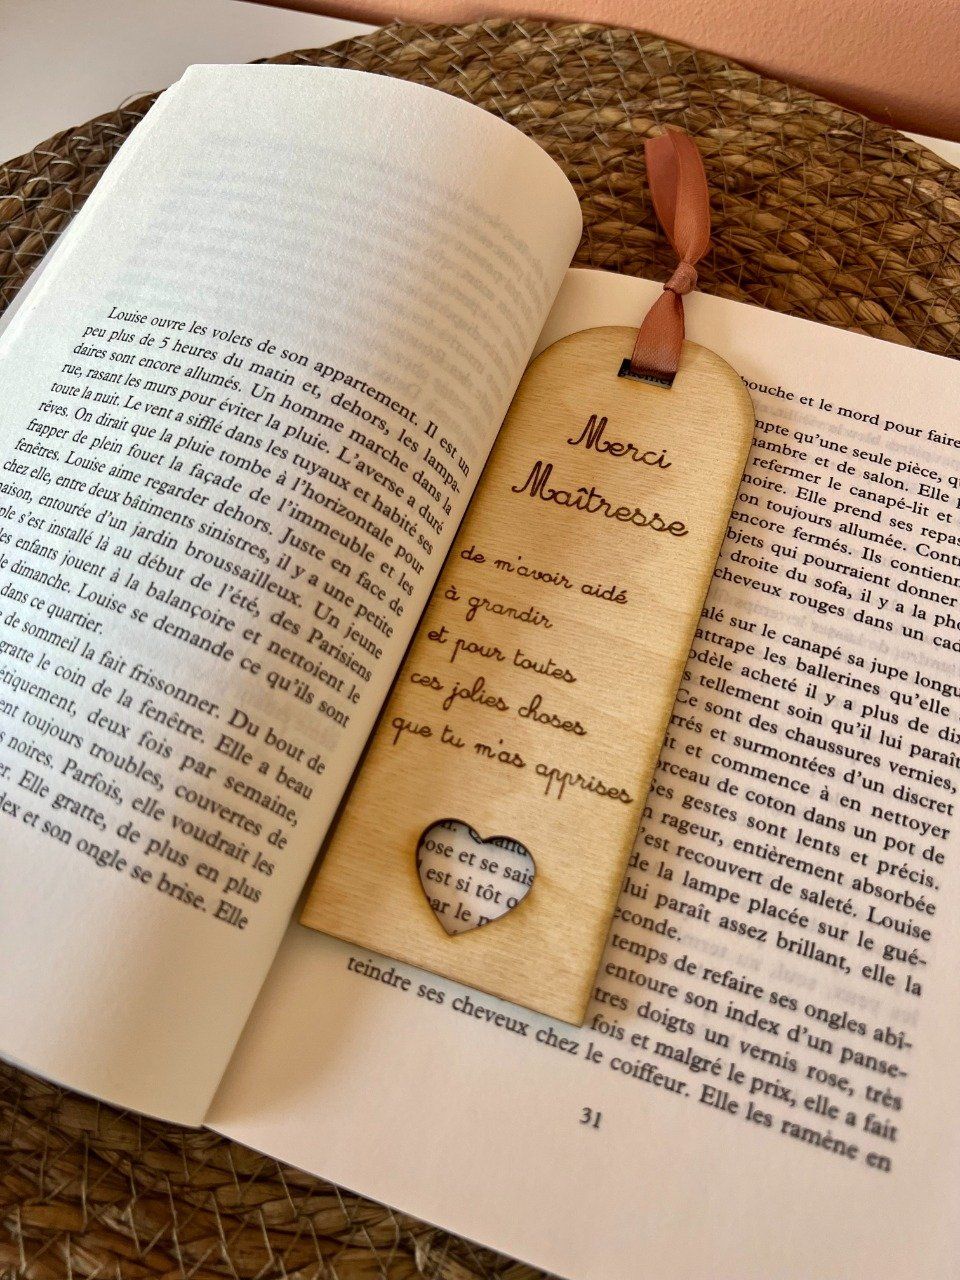 Louise ouvre les volets de son appartement. Il est un
peu plus de 5 heures du matin et, dehors, les lampa-
daires sont encore allumés. Un homme marche dans la
rue, rasant les murs pour éviter la pluie. L'averse a duré
toute la nuit. Le vent a sifflé dans les tuyaux et habité ses
rêves. On dirait que la pluie tombe à l'horizontale pour
frapper de plein fouet la façade de l'immeuble et les
fenêtres. Louise aime regarder dehors. Juste en face de
chez elle, entre deux bâtiments sinistres, il y a une petite
maison, entourée d'un jardin broussailleux. Un jeune
s'est installé là au début de l'été, des Parisiens
enfants jouent à la balançoire et nettoient le
dimanche. Louise se demande ce qu'ils sont
dans ce quartier.
de sommeil la fait frissonner. Du bout de
gratte le coin de la fenêtre. Elle a beau
deux fois par semaine,
toujours troubles, couvertes de
noires. Parfois, elle voudrait les
Elle gratte, de plus en plus
et son ongle se brise. Elle
Merci
Maîtresse
de m'avoir aidé
à grandir
et pour toutes
ces jolies choses
que tu m'as apprises
ose et se sais
est si tôt
par le
bouche et le mord pour faire
qu'une seule pièce,
et de salon. Elle
refermer le canapé-lit et
noire. Elle prend ses repas
toujours allumée.
encore fermés. Ils
qui pourraient donner
droite du sofa, il y a la
cheveux rouges dans un
sur le canapé sa jupe
attrape les ballerines qu'elle
acheté il y a plus de dix
tellement soin qu'il lui paraît
Ce sont des chaussures vernies,
et surmontées d'un discret
et commence à en nettoyer
morceau de coton dans un pot de
Ses gestes sont lents et précis.
rageur, entièrement absorbée
est recouvert de saleté. Louise
de la lampe placée sur le gué-
lui paraît assez brillant, elle la
temps de refaire ses ongles abî-
entoure son index d'un panse-
doigts un vernis rose, très
fois et malgré le prix, elle a fait
teindre ses cheveux chez le coiffeur. Elle les ramène en
31